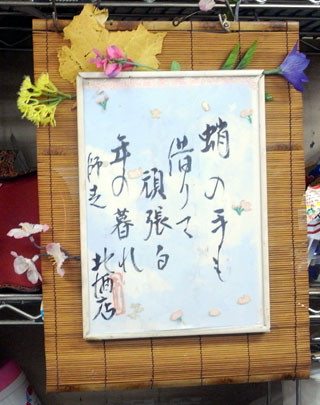 蛸の手も
借りて
頑張る
年の暮れ
師走
北酒店